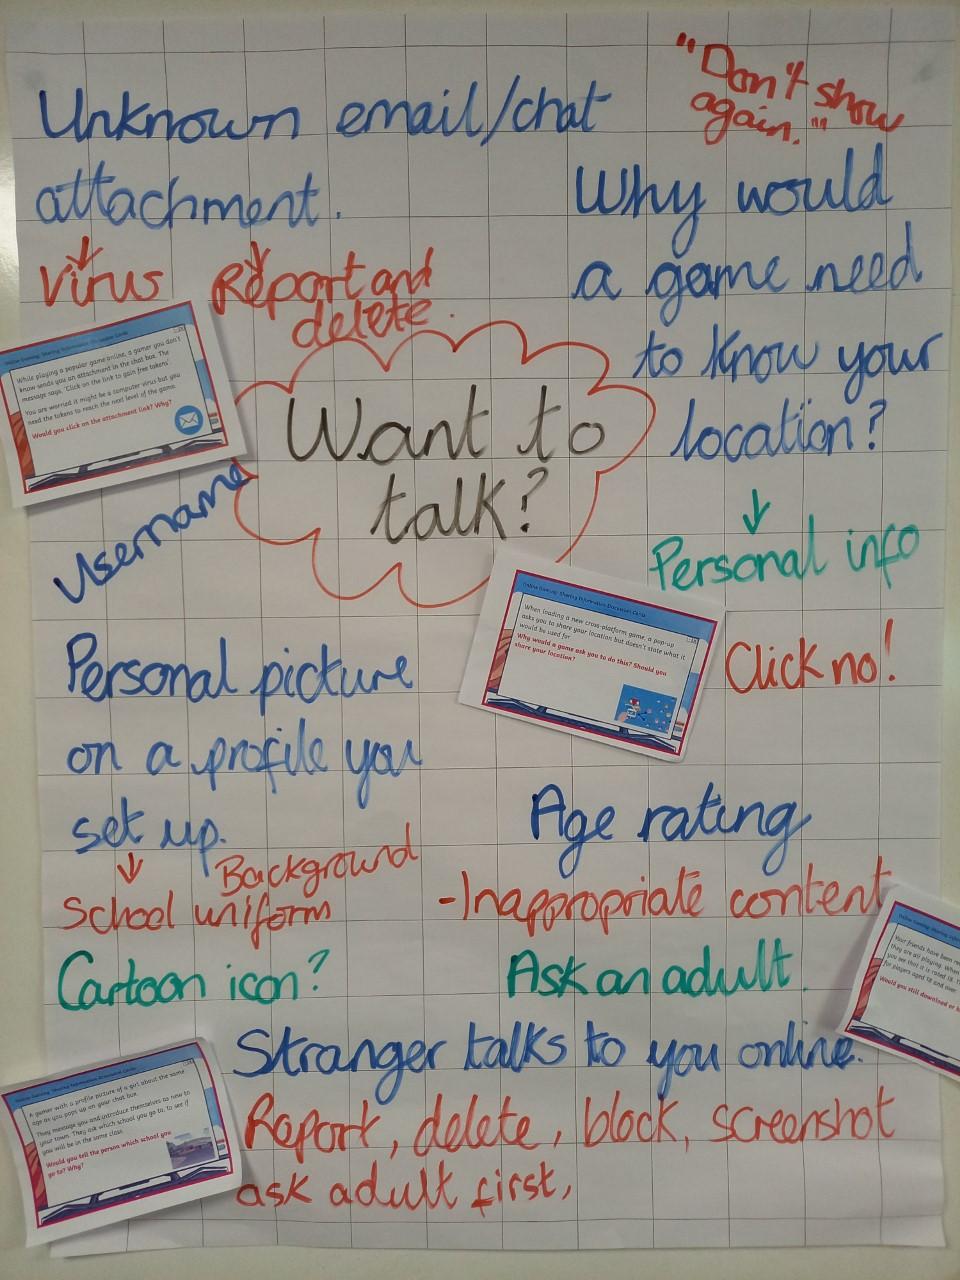 "Don't show
again."
Unknown email/chat
attachment.
Virus
Report and
delete.
Why would
a game need
to know your
location?
Personal info
Click no!
Online Gaming: Sharing Information Discussion Cards
While playing a popular game online, a gamer you don't
know sends you an attachment in the chat box. The
message says, 'Click on the link to gain free tokens'
You are worried it might be a computer virus but you
need the tokens to reach the next level of the game.
Would you click on the attachment link? Why?
Want to
talk?
Username
Online Gaming: Sharing Information Discussion Cards
When loading a new cross-platform game, a pop-up
asks you to share your location but doesn't state what it
would be used for
Why would a game ask you to do this? Should you
share your location?
Personal picture
on a profile you
set up.
Background
School uniform
Cartoon icon?
Age rating
-Inappropriate content
Ask an adult.
Online Gaming: Sharing
Your friends have been
they are all playing. When
you see that it is rated 18.
for players aged 18 and over
Would you still download
Stranger talks to you online.
Report, delete, block, screenshot
ask adult first,
Online Gaming: Sharing Information Discussion Cards
A gamer with a profile picture of a girl about the same
age as you pops up on your chat box.
They message you and introduce themselves as new to
your town. They ask which school you go to, to see if
you will be in the same class.
Would you tell the person which school you
go to? Why?